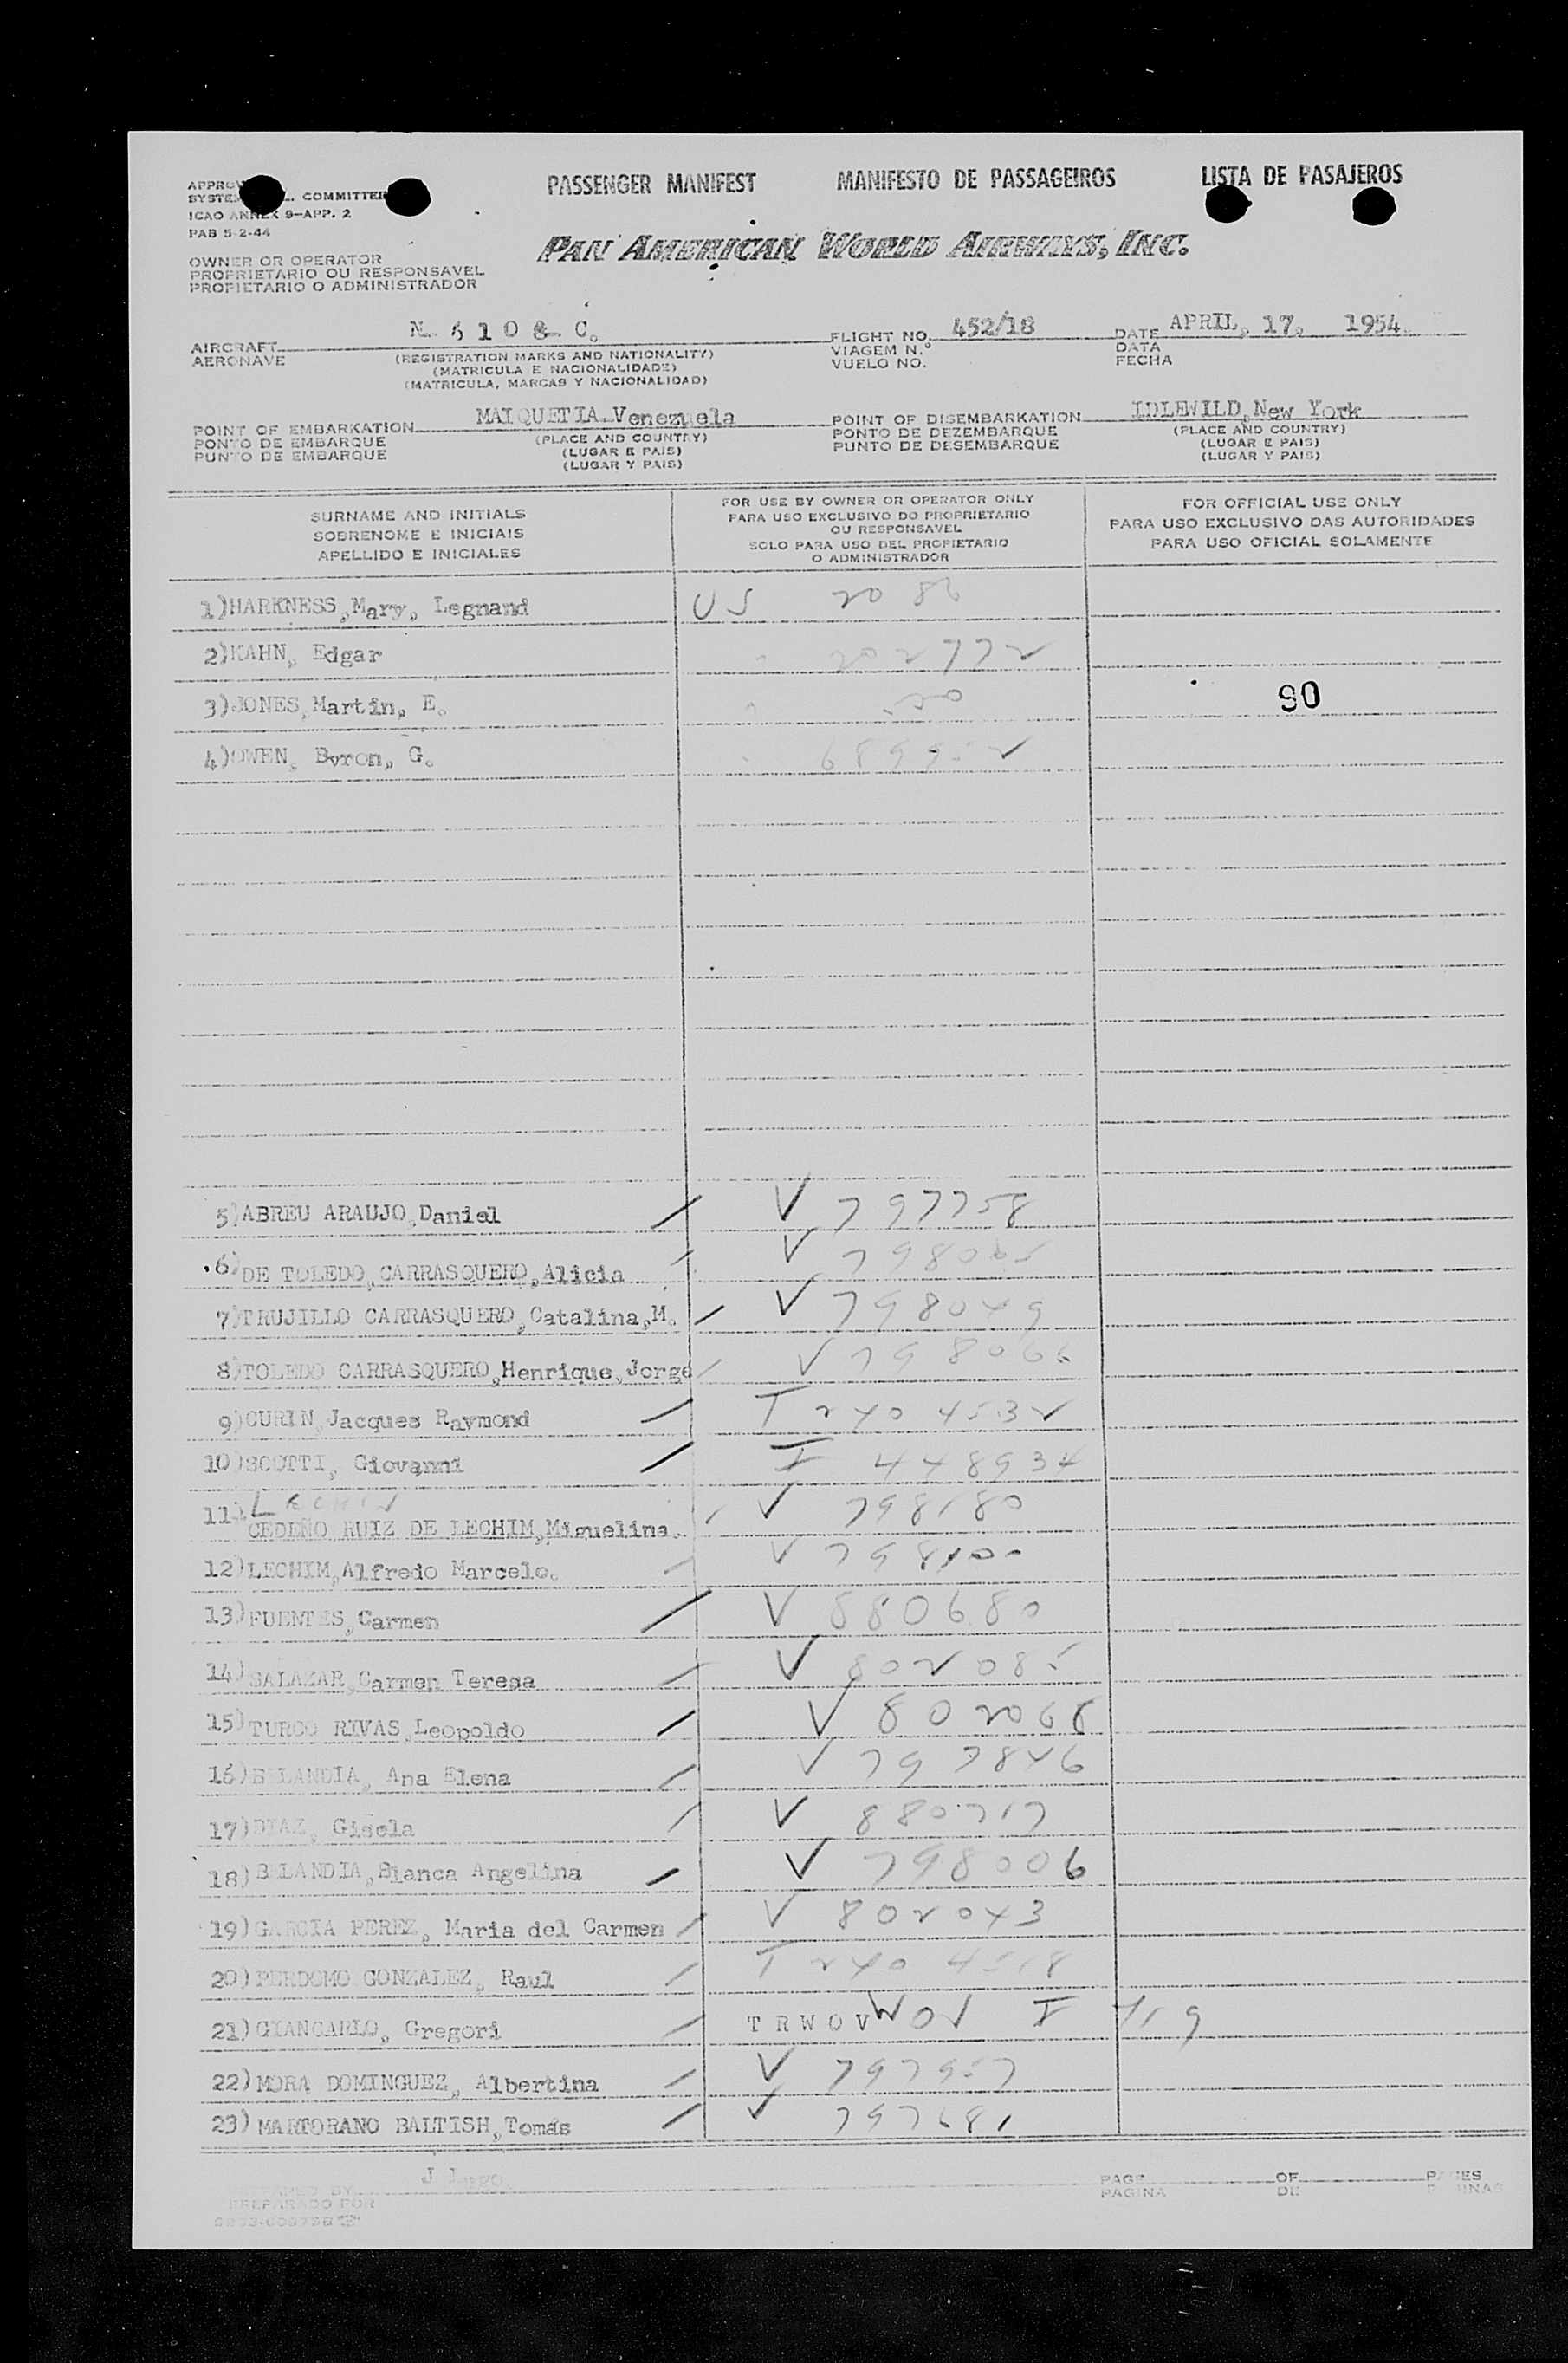 PASSENGER MANIFEST MANIFESTO DE PASSAGEIROS LISTA DE PASAJEROS
COMMITTEE
ICAO ANNEX 9-APP. 2
PAB 5-2-44
PAN AMERICAN WORLD AIRWAYS, INC.
OWNER OR OPERATOR
PROPRIETARIO OU RESPONSAVEL
PROPIETARIO O ADMINISTRADOR
AIRCRAFT FLIGHT NO. 452/18 DATE APRIL, 17, 1954.
AERONAVE (REGISTRATION MARKS AND NATIONALITY) VIAGEM N.º DATA
(MATRICULA E NACIONALIDADE) VUELO NO. FECHA
(MATRICULA, MARCAS Y NACIONALIDAD)
POINT OF EMBARKATION MAIQUETIA, Venezuela POINT OF DISEMBARKATION IDLEWILD, New York
PONTO DE EMBARQUE (PLACE AND COUNTRY) PONTO DE DEZEMBARQUE (PLACE AND COUNTRY)
PUNTO DE EMBARQUE (LUGAR E PAIS) PUNTO DE DESEMBARQUE (LUGAR E PAIS)
(LUGAR Y PAIS) (LUGAR Y PAIS)
SURNAME AND INITIALS
SOBRENOME E INICIAIS
APELLIDO E INICIALES
FOR USE BY OWNER OR OPERATOR ONLY
PARA USO EXCLUSIVO DO PROPRIETARIO
OU RESPONSAVEL
SOLO PARA USO DEL PROPIETARIO
O ADMINISTRADOR
FOR OFFICIAL USE ONLY
PARA USO EXCLUSIVO DAS AUTORIDADES
PARA USO OFICIAL SOLAMENTE
1) HARKNESS, Mary, Legnand US
2) KAHN, Edgar
3) JONES, Martin, E. 90
4) OWEN, Byron, G.
5) ABREU ARAUJO, Daniel V 797758
6) DE TOLEDO, CARRASQUERO, Alicia V
7) TRUJILLO CARRASQUERO, Catalina, M. V 798049
8) TOLEDO CARRASQUERO, Henrique, Jorge V
9) CURIN, Jacques Raymond
10) SCOTTI, Giovanni I 448934
11) CEDEÑO RUIZ DE LECHIM, Miguelina. V 798180
12) LECHIM, Alfredo Marcelo. V
13) FUENTES, Carmen V 880680
14) SALAZAR, Carmen Teresa V 802085
15) TURCO RIVAS, Leopoldo V 802068
16) BELANDIA, Ana Elena V 797846
17) DIAZ, Gisela V 880717
18) BELANDIA, Blanca Angelina V 798006
19) GARCIA PEREZ, Maria del Carmen V 802043
20) PERDOMO GONZALEZ, Raul
21) GIANCARLO, Gregori TRWOV WOV I 419
22) MORA DOMINGUEZ, Albertina V 797957
23) MARTORANO BALTISH, Tomás V
PAGE OF PAGES
PAGINA DE PAGINAS
PREPARED BY
PREPARADO POR